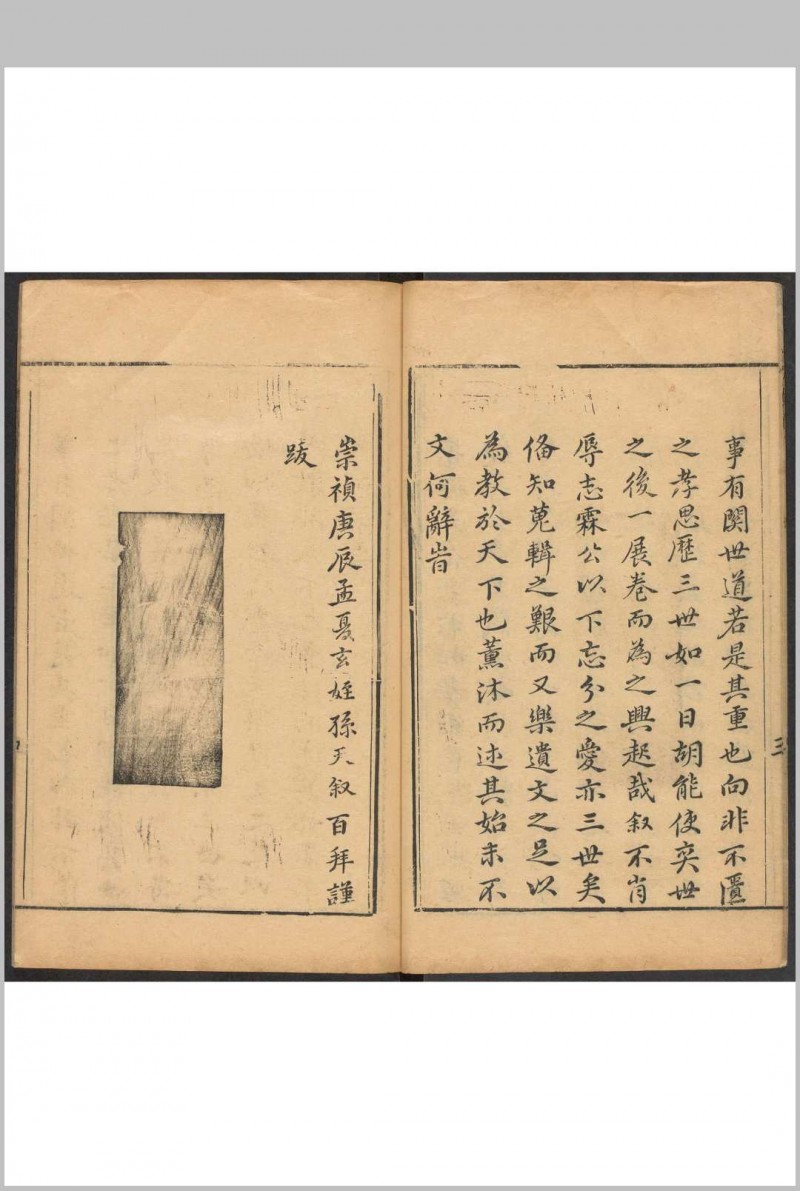 事有関世道若是其重也向非不匱
之孝思歷三世如一日胡能使奕世
之後一展卷而為之興起哉叙不肖
辱志霖公以下忘分之愛亦三世矣
俻知蒐輯之艱而又樂遺文之足以
為教於天下也薰沐而述其始末不
文何辭旹
三
崇禎庚辰孟夏玄姪孫天叙百拜謹
跋